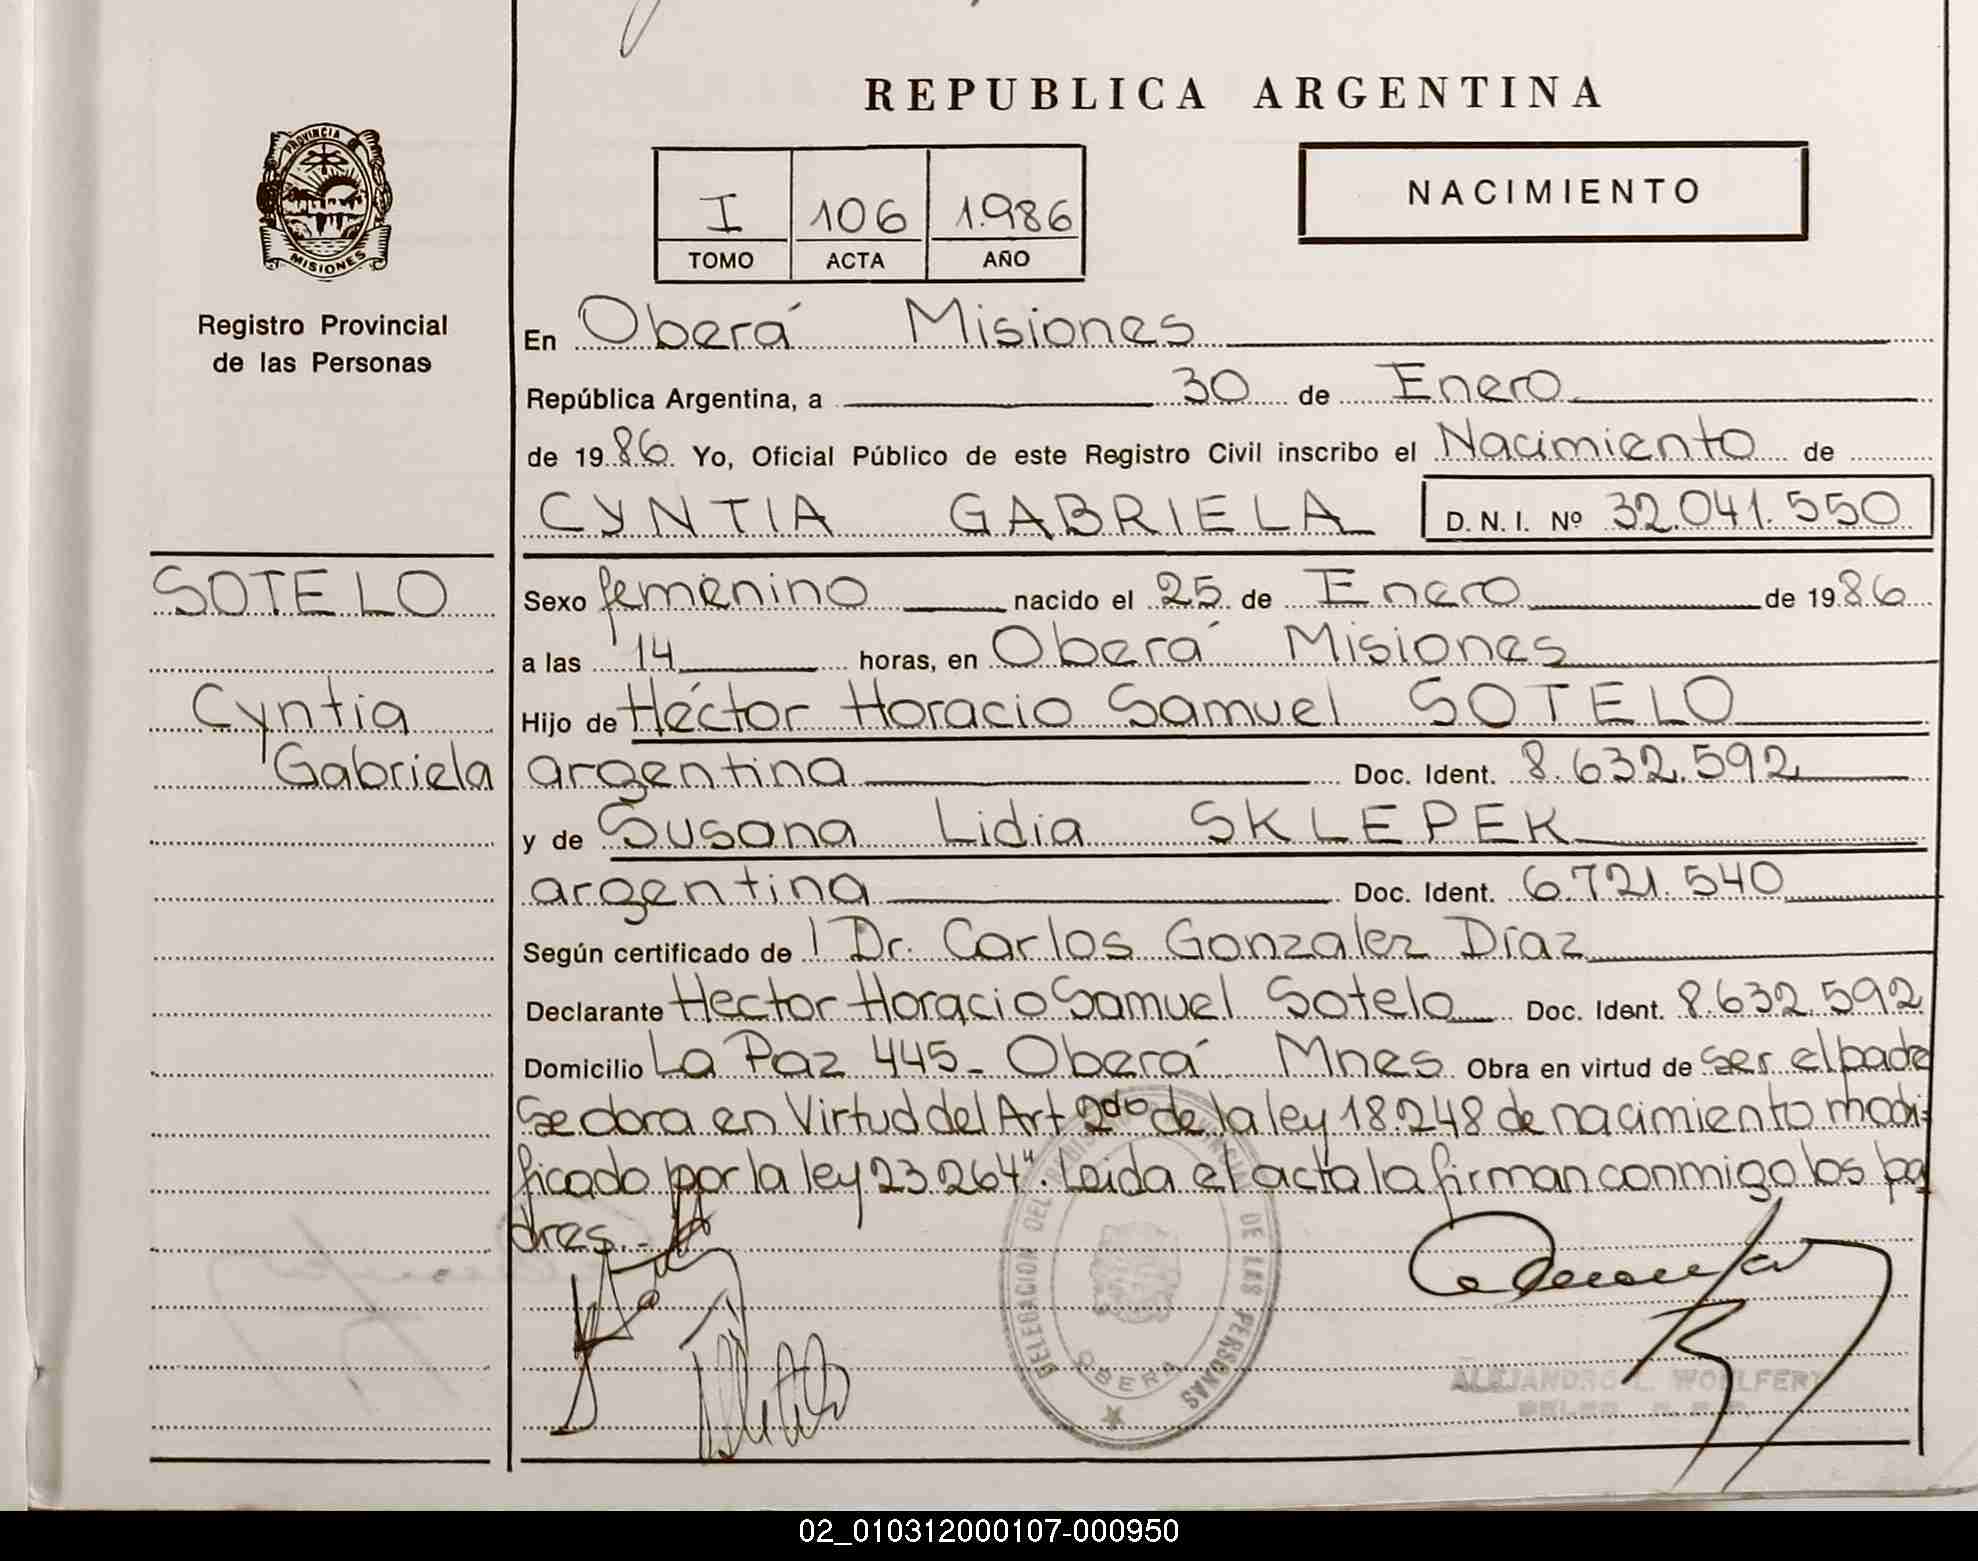 REPUBLICA ARGENTINA
PROVINCIA
MISIONES
I 106 1.986
TOMO ACTA AÑO
NACIMIENTO
Registro Provincial
de las Personas
En Oberá Misiones
República Argentina, a 30 de Enero
de 1986 Yo, Oficial Público de este Registro Civil inscribo el Nacimiento de
CYNTIA GABRIELA D. N. I. Nº 32.041.550
SOTELO
Cyntia
Gabriela
Sexo femenino nacido el 25 de Enero de 1986
a las 14 horas, en Oberá Misiones
Hijo de Héctor Horacio Samuel SOTELO
argentina Doc. Ident. 8.632.592
y de Susana Lidia SKLEPEK
argentina Doc. Ident. 6.721.540
Según certificado de Dr. Carlos Gonzalez Díaz
Declarante Hector Horacio Samuel Sotelo Doc. Ident. 8.632.592
Domicilio La Paz 445- Oberá Mnes Obra en virtud de ser el padre
Se dora en Virtud del Art 2do de la ley 18.248 de nacimiento modi-
ficado por la ley 23.264". Leida el acta la firman conmigo los pa
dres.-
DELEGACION DEL REGISTRO PROVINCIAL DE LAS PERSONAS
OBERA
ALEJANDRO L. WOLFERT
02_010312000107-000950